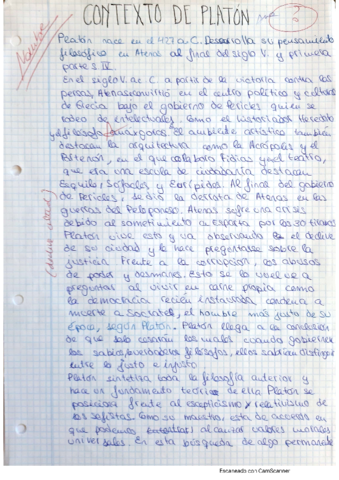 CONTEXTO DE PLATÓN
Nombre
Platón nace en el 427 a. C. Desarrolla su pensamiento
filosófico en Atenas al final del siglo V. y primera
parte s IV.
En el siglo V. a. C a partir de la victoria contra los
persas, Atenas se convirtió en el centro político y cultural
de Grecia bajo el gobierno de Pericles quien se
rodea de intelectuales. Como el historiador Herodoto
y el filosofo Anaxágoras. El ambiente artístico también
destacan la arquitectura como la Acrópolis y el
Partenón, en el que colabora Fidias y el teatro,
que era una escuela de ciudadanía destacan
Esquilo, Sófocles y Eurípides. Al final del gobierno
de Pericles, se dio la derrota de Atenas en las
guerras del Peloponeso. Atenas sufre una crisis
debido al sometimiento a Esparta por los 30 tiranos
Platón vive esto y va observando en el declive
de su ciudad y le hace preguntarse sobre la
justicia frente a la corrupción, los abusos
de poder y desmanes. Esto se lo vuelve a
preguntar al vivir en carne propia como
la democracia recien instaurada condena a
muerte a Socrates, el hombre más justo de su
Época, según Platón. Platón llega a la conclusión
de que solo cesarán los males cuando gobiernen
los sabios, verdaderos filosofos, ellos sabrían distinguir
entre lo justo e injusto
Platón sintetiza toda la filosofía anterior y
hace un fundamento teórico de ella Platón se
posiciona frente al escepticismo y relativismo de
los sofistas como su maestro, esta de acuerdo en
que podemos alcanzar valores morales
universales. En esta búsqueda de algo permanente
Escaneado con CamScanner